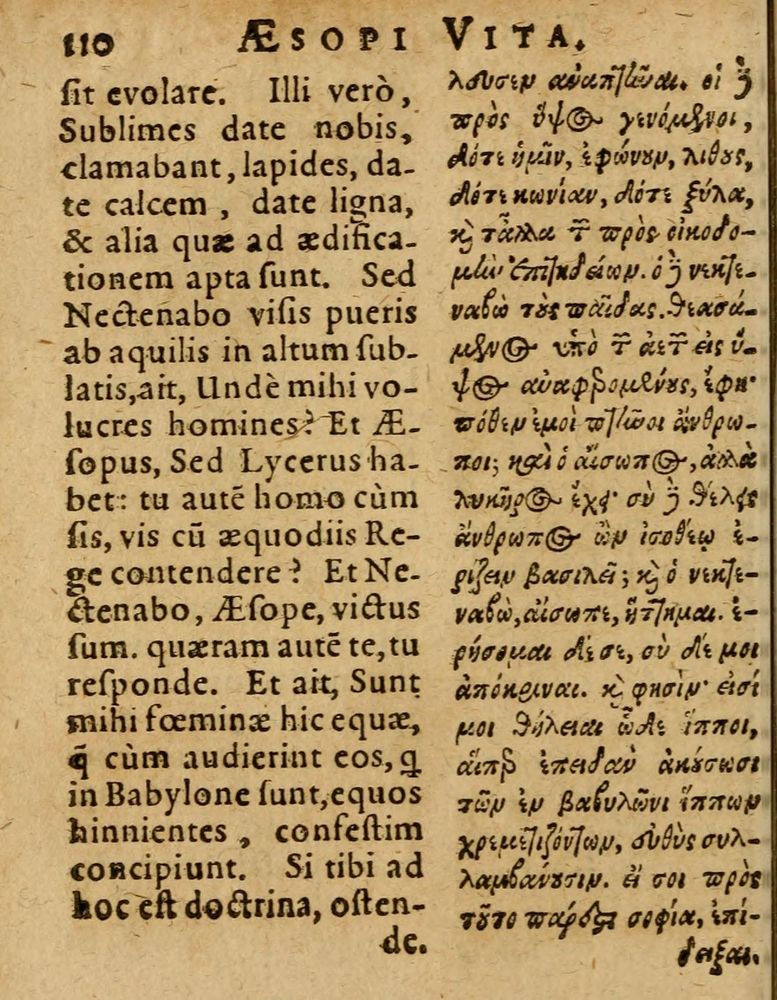 110 ÆSOPI VITA.
ſit evolare. Illi verò,
Sublimes date nobis,
clamabant, lapides, da-
te calcem, date ligna,
& alia quæ ad ædifica-
tionem apta ſunt. Sed
Nectenabo viſis pueris
ab aquilis in altum ſub-
latis, ait, Undè mihi vo-
lucres homines? Et Æ-
ſopus, Sed Lycerus ha-
bet: tu autē homo cùm
ſis, vis cū æquodiis Re-
ge contendere? Et Ne-
ctenabo, Æſope, victus
ſum. quæram autē te, tu
reſponde. Et ait, Sunt
mihi fœminæ hic equæ,
q̄ cùm audierint eos, q
in Babylone ſunt, equos
hinnientes, confeſtim
concipiunt. Si tibi ad
hoc eſt doctrina, oſten-
de.
λουσιν αναπτῆναι. οἱ δὲ
πρὸς ὕψος γενόμενοι,
δότε ἡμῖν, ἐφώνουν, λίθους,
δότε κωνίαν, δότε ξύλα,
κὶ τἆλλα τῶν πρὸς οἰκοδο-
μὴν ἐπιτηδείων. ὁ δὲ νεκτε-
ναβὼ τοὺς παῖδας θεασά-
μενος ὑπὸ τῶν ἀετῶν εἰς ὕ-
ψος ἀναφερομένους, ἔφη·
πόθεν ἐμοὶ πτηνοὶ ἄνθρω-
ποι; καὶ ὁ αἴσωπος, ἀλλὰ
λυκῆρος ἔχει· σὺ δὲ θέλεις
ἄνθρωπος ὢν ἰσοθέῳ ἐ-
ρίζειν βασιλεῖ; κὶ ὁ νεκτε-
ναβὼ, αἴσωπε, ἥττημαι. ἐ-
ρήσομαι δέ σε, σὺ δέ μοι
ἀπόκριναι. κὶ φησὶν· εἰσί
μοι θήλειαι ὧδε ἵπποι,
αἵπερ ἐπειδὰν ἀκούσωσι
τῶν ἐν βαβυλῶνι ἵππων
χρεμετιζόντων, εὐθὺς συλ-
λαμβάνουσιν. εἴ σοι πρὸς
τοῦτο πάρεστι σοφία, ἐπί-
δειξαι.